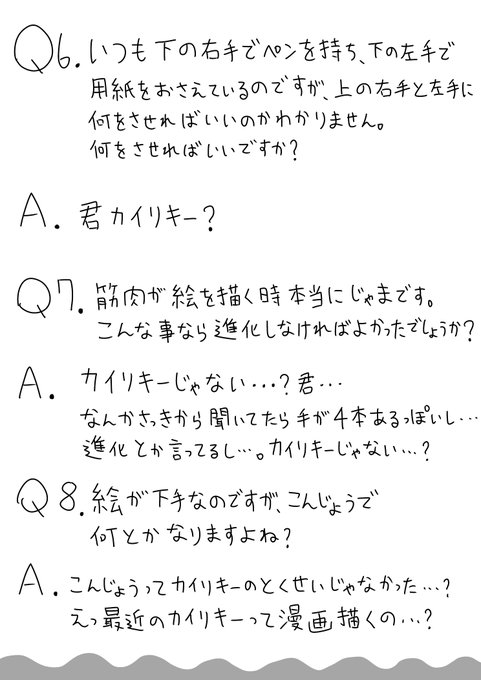 Q6.いつも下の右手でペンを持ち、下の左手で
用紙をおさえているのですが、上の右手と左手に
何をさせればいいのかわかりません。
何をさせればいいですか?
A.君カイリキー?
Q7.筋肉が絵を描く時本当にじゃまです。
こんな事なら進化しなければよかったでしょうか?
A.カイリキーじゃない…?君…
なんかさっきから聞いてたら手が4本あるっぽいし…
進化とか言ってるし…。カイリキーじゃない…?
Q8.絵が下手なのですが、こんじょうで
何とかなりますよね?
A.こんじょうってカイリキーのとくせいじゃなかった…?
えっ最近のカイリキーって漫画描くの…?